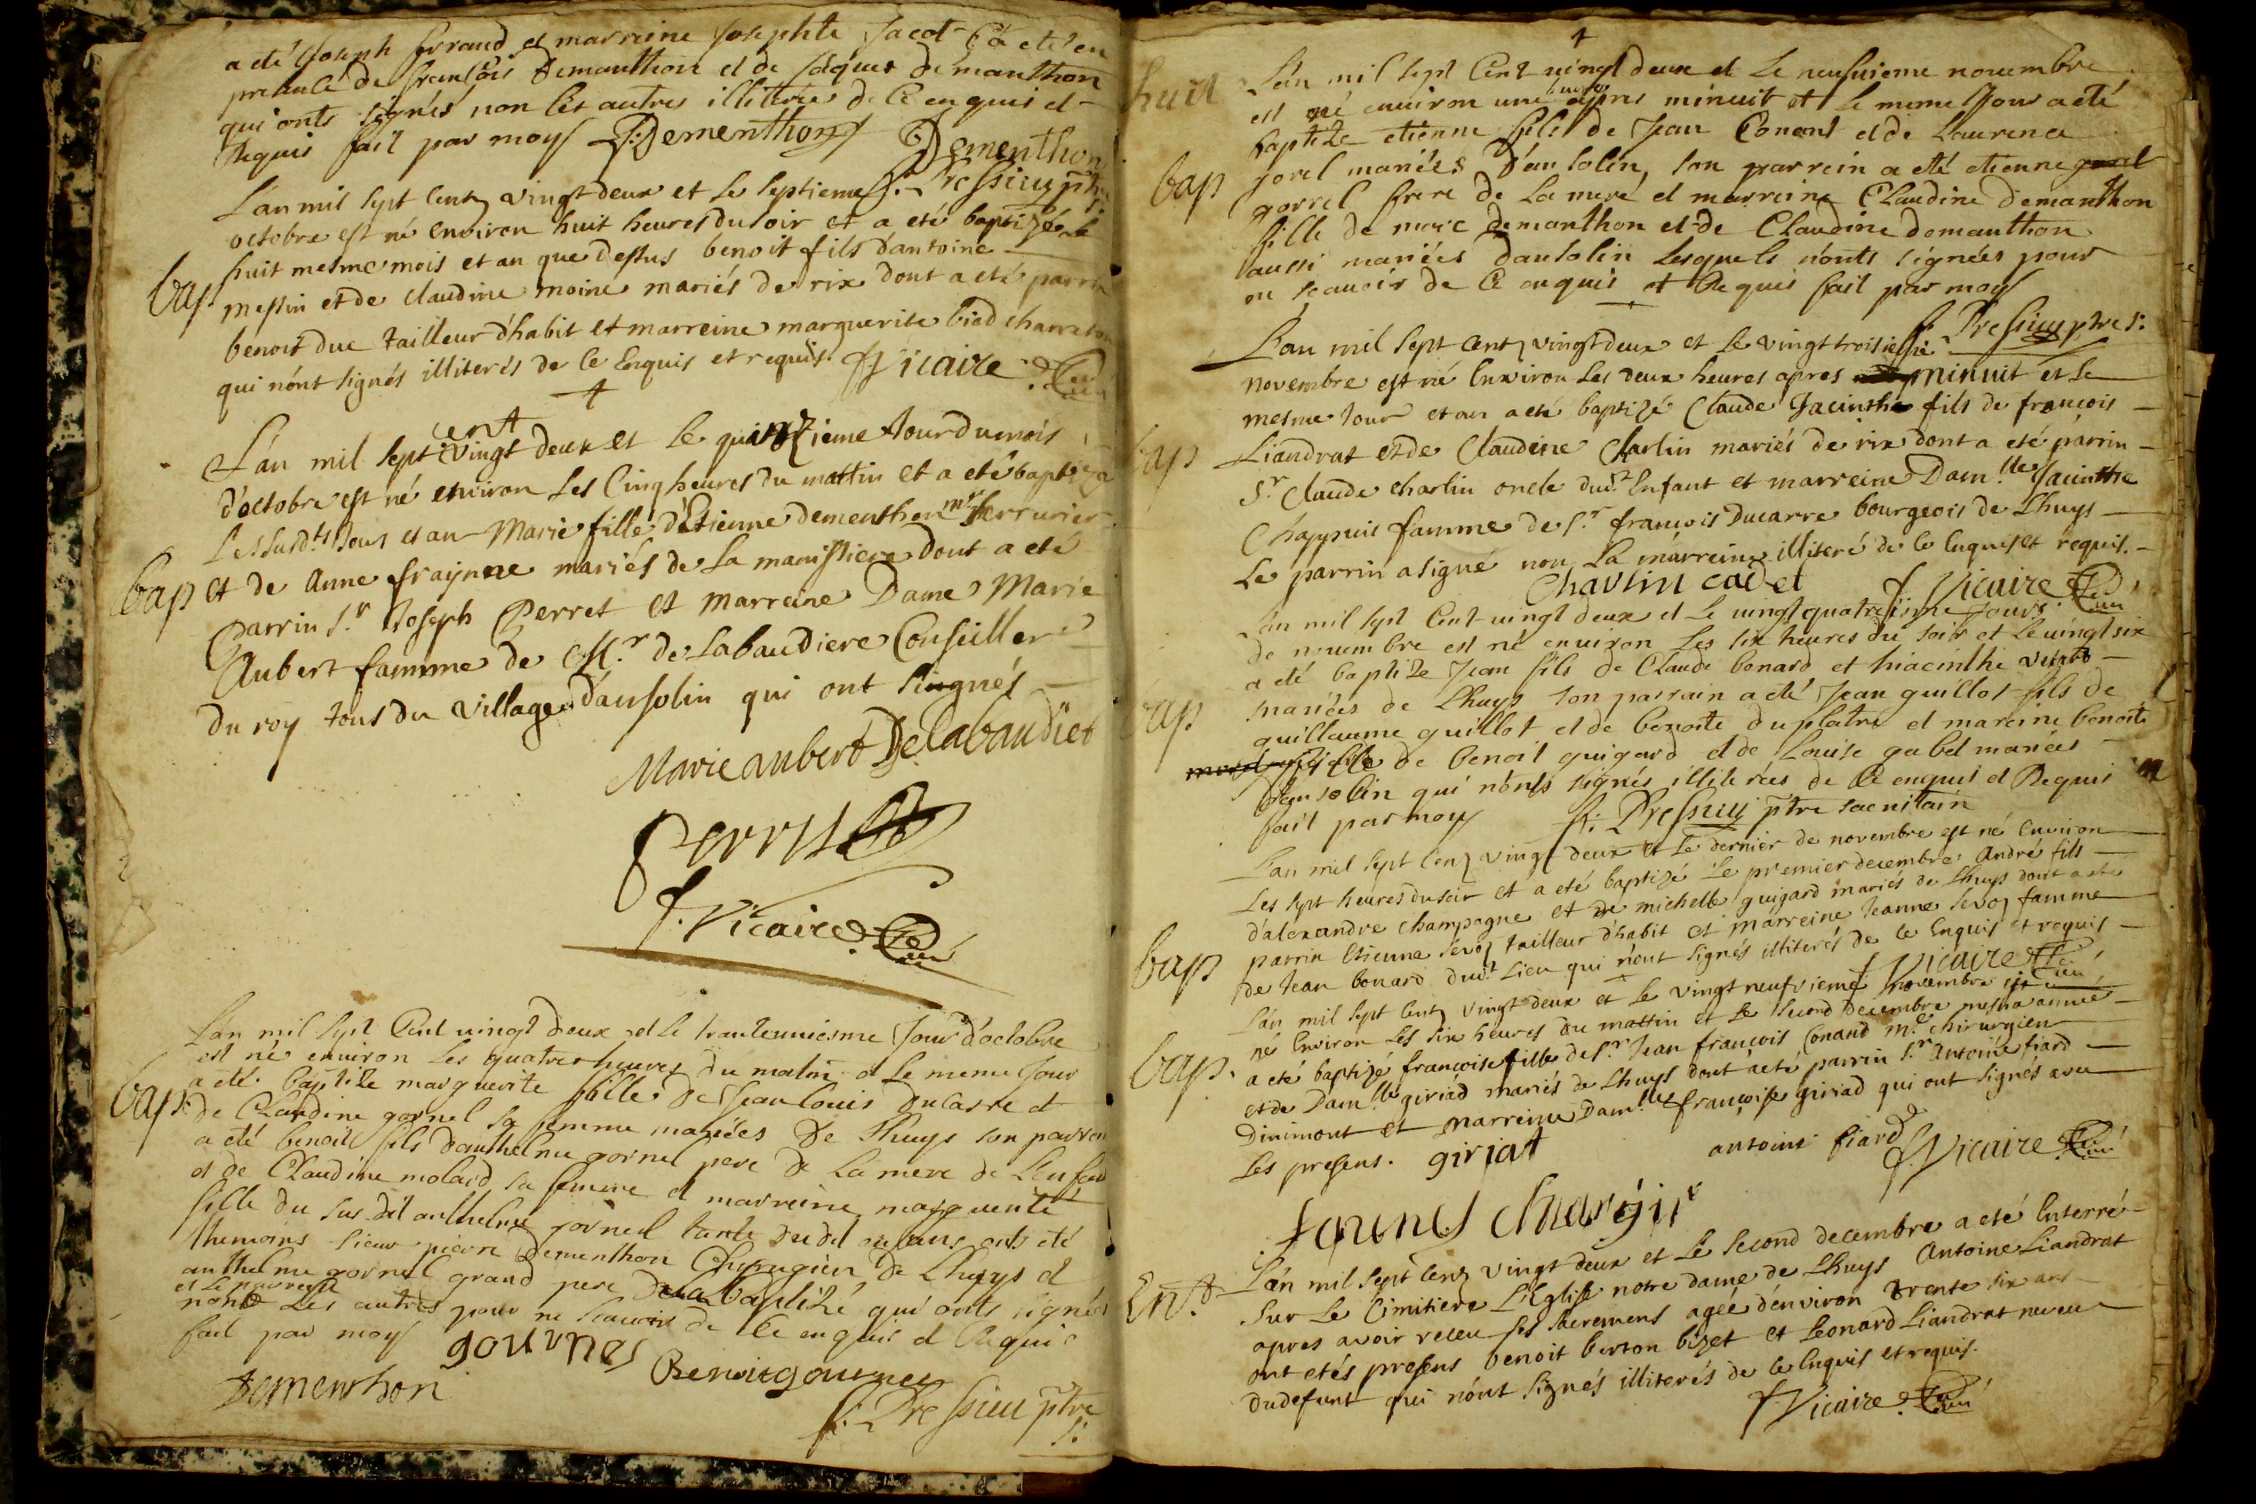 a eté Joseph ferraud et marreine Josephte Jacot Ca eté en
presence de francois Demanthon et de Jacques demanthon
qui onts signés non les autres illiterés de Ce enquis et
Requis fait par moy J: Dementhon Dementhon
f: Pressieu ptre
L'an mil sept Cent vingt deux et le septieme
octobre est né Environ huit heures du soir et a eté baptizé le
huit mesme mois et an que dessus benoit fils d'antoine
bap. messin et de Claudine moine mariés de rix dont a eté parrin
benoit duc tailleur d'habit et marreine marguerite biod charreton
qui n'ont signés illiterés de Ce Enquis et requis. f. Vicaire Curé
cent
L'an mil sept vingt deux et le quinzieme Jour du mois
d'octobre est né environ Les Cinq heures du mattin et a eté baptizé
Les susdts Jour et an Marie fille d'Etienne dementhon mre serrurier
bap et de Anne fraynne mariés de La manissiere dont a eté
Parrin Sr. Joseph Perret et Marreine Dame Marie
Aubert famme de Mr. de Labaudiere Conseiller
du roy tous du village d'ansolin qui ont signés
Marie aubert De Labaudier
Perret
f. Vicaire Curé
L'an mil sept Cent vingt deux et le trenteuniesme Jour d'octobre
est né environ Les quatre heures du matin et Le meme Jour
a eté baptize marguerite fille de Jean louis Ducarre et
bap. de Claudine gornel sa femme mariées De Lhuys son parrein
a eté benoit fils d'anthelme gornel pere De La mere de L'enfant
et de Claudine molard sa femme et marreine marguerite
fille du sus dit anthelme gornel tante dudit enfans onts eté
themoins sieur pierre Dementhon Chirurgien de Lhuys et
anthelme gornel grand pere De La baptizé qui onts signés
et Le parrein
non Les autres pour ne scauoir de Ce enquis et Requis
fait par moy gournes
Dementhon Benoit gournes
f: Pressieu ptre
S:
huit L'an mil sept Cent vingt deux et Le neufuieme nouembre
est né enuiron une heure apres minuit et Le meme Jour a eté
baptize etienne fils de Jean Conand et de Laurence
bap gorel mariées d'ansolin, son parrein a eté etienne
gorrel frere de La mere et marreine Claudine demanthon
fille de marc demanthon et de Claudine demanthon
aussi mariées dansolin Lesquels n'onts signées pour
ne scauoir de Ce enquis et Requis fait par moy
f: Pressieu ptre S:
L'an mil sept Cent vingt deux et le vingt troisiesme
novembre est né Environ Les deux heures apres minuit et le
mesme Jour et an a eté baptizé Claude Jacinthe fils de françois
bap Liandrat et de Claudine Charlin mariés de rix dont a eté parrin
Sr. Claude charlin oncle dudt Enfant et marreine Damlle Jacinthe
Chappuis famme de Sr. françois Ducarre bourgeois de Lhuys
Le parrin a signé non La marreine illiteré de Ce Enquis et requis.
Charlin cadet f. Vicaire Curé
L'an mil sept Cent vingt deux et Le vingt quatrieme Jours
de nouembre est né enuiron Les six heures du soir et Le vingt six
a eté baptize Jean fils de Claude bonard et hiacinthe
bap mariées de Lhuys son parrain a eté Jean guillot fils de
guillaume guillot et de benoite duplatre et mareine benoite
fille de benoit guigard et de Louise gabet mariées
d'ansolin qui n'onts signés illiterées de Ce enquis et Requis
fait par moy f: Pressieu ptre sacristain
L'an mil sept Cent vingt deux et Le dernier de novembre est né Environ
Les sept heures du soir et a eté baptizé Le premier decembre André fils
d'alexandre champagne et de michelle guigard mariés de Lhuys dont a eté
bap parrin Etienne sévoz tailleur d'habit et marreine Jeanne sévoz famme
de Jean bonard dudt Lieu qui n'ont signés illiterés de Ce Enquis et requis
f. Vicaire Curé
L'an mil sept Cent vingt deux et Le vingt neufvieme novembre est
né Environ Les six heures du mattin et Le second decembre mesme année
bap. a eté baptizé françoise fille de Sr. Jean françois Conand me. chirurgien
et de Damlle giriad mariés de Lhuys dont a eté parrin Sr. Antoine fiard
Dinimont et marreine Damlle françoise giriad qui ont signés avec
Les presens. giriat antoine fiard f. Vicaire Curé
L'an mil sept Cent vingt deux et Le second decembre a eté Enterré
Ent. Sur Le Cimitiere L'Eglise notre dame de Lhuys Antoine Liandrat
apres avoir receu ses sacremens ageé d'environ trente six ans
ont etés presens benoit berton bizet et Leonard Liandrat neveu
du defunt qui n'ont signés illiterés de Ce Enquis et requis.
f. Vicaire Curé